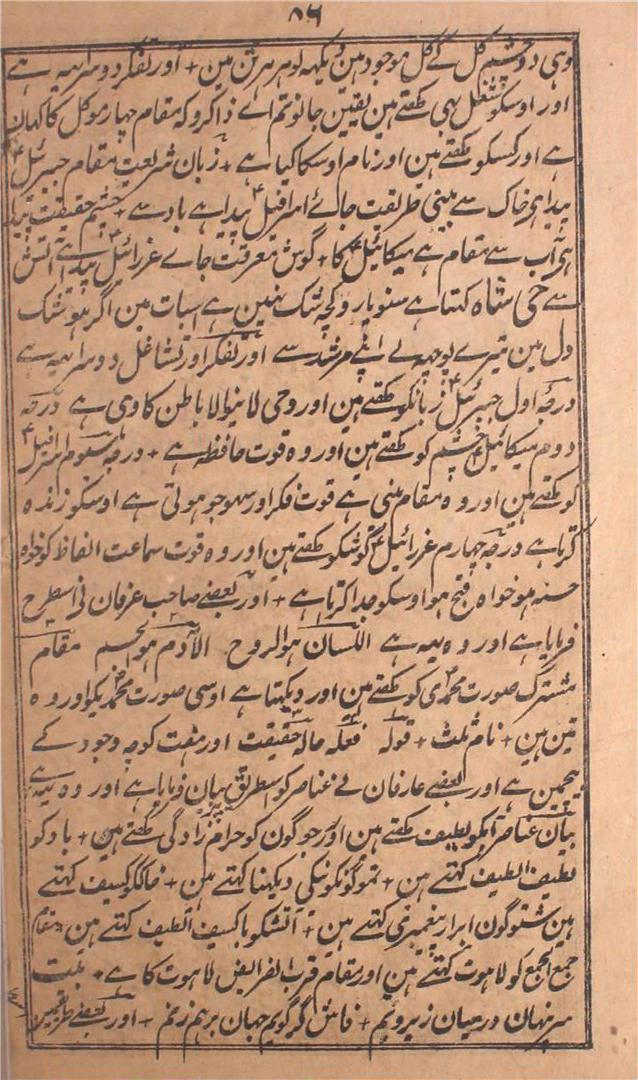 ۵۶
وہی دو چشم کل کے کل موجود مین دیکھہ لو ہر ہر تن مین + اور تفکر دوسرا یہہ ہے
اور اوسکو شغل بہی کہتے ہین یقین جانو تم اے ذاکرو کہ مقام چہار موکل کا کہان
ہے اور کسکو کہتے ہین اور نام اوسکا کیا ہے + زبان شریعت مقام جبرئیل ؑ
پیدا ہے خاک سے بینی طریقت جائے اسرافیل ؑ پیدا ہے باد سے + چشم حقیقت پیدا
ہے آب سے مقام ہے میکائیل ؑ کا + گوش معرفت جاے عزرائیل ؑ پیدا ہے آتش
سے حی شاہ کہتا ہے سنو یارو کچہ شک نہین ہے اسبات مین اگر ہو شک
دل مین تیرے پوچہہ لے اپنے مرشد سے اور تفکر اور تشاغل دوسرا یہہ ہے
درجہ اول جبرئیل ؑ زبانکو کہتے ہین اور وحی لانیوالا باطن کا وہی ہے درجہ
دوم میکائیل ؑ چشم کو کہتے ہین اور وہ قوت حافظہ ہے + درجہ سوم اسرافیل ؑ
کو کہتے ہین اور وہ مقام بینی ہے قوت فکر اور سہو جو ہوتی ہے اوسکو زندہ
کرتا ہے درجہ چہارم عزرائیل ؑ گوشکو کہتے ہین اور وہ قوت سماعت الفاظ کو خواہ
حسنہ ہو خواہ قبح ہو اوسکو جدا کرتا ہے + اور بعضے صاحب عرفان نی اسطرح
فرمایا ہے اور وہ یہہ ہے الانسان ہوالروح الآدم ہوالجسم مقام
مشترک صورت محمدی کو کہتے ہین اور دیکہتا ہے اوسی صورت محمدیکو اور وہ
تین ہین + نام مثلث + قولہ فعلہ مالہ حقیقت اور ہفت کوچہ وجود کے
ہین ہے اور بعضے عارفان نے عناصر کو اسطریق بیان فرمایا ہے اور وہ یہہ ہے
بیان عناصر آبکو لطیف کہتے ہین اور رجو گون کو حرام زادگی کہتے ہین + باد کو
لطیف الطیف کہتے ہین + تمو گونکو نیکی دیکہنا کہتے ہین + خاککو کسیف کہتے
ہین ستو گون ابرار پیغمبری کہتے ہین + آتشکو با کسیف الطیف کہتے ہین مقام
جمع الجمع کو لاہوت کہتے ہین اور مقام قرب الفرایض لاہوت کا ہے + بیت
سر نہان درمیان زیر و بم + فاش گر گویم جہان برہم زنم + اور بعضے